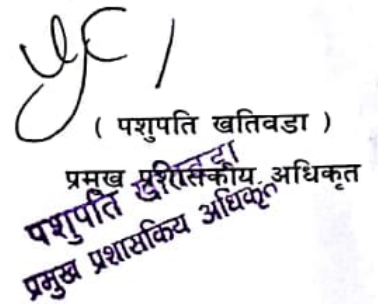 ( पशुपति खतिवडा )
प्रमुख प्रशासकीय अधिकृत
पशुपति खतिवडा
प्रमुख प्रशासकिय अधिकृत